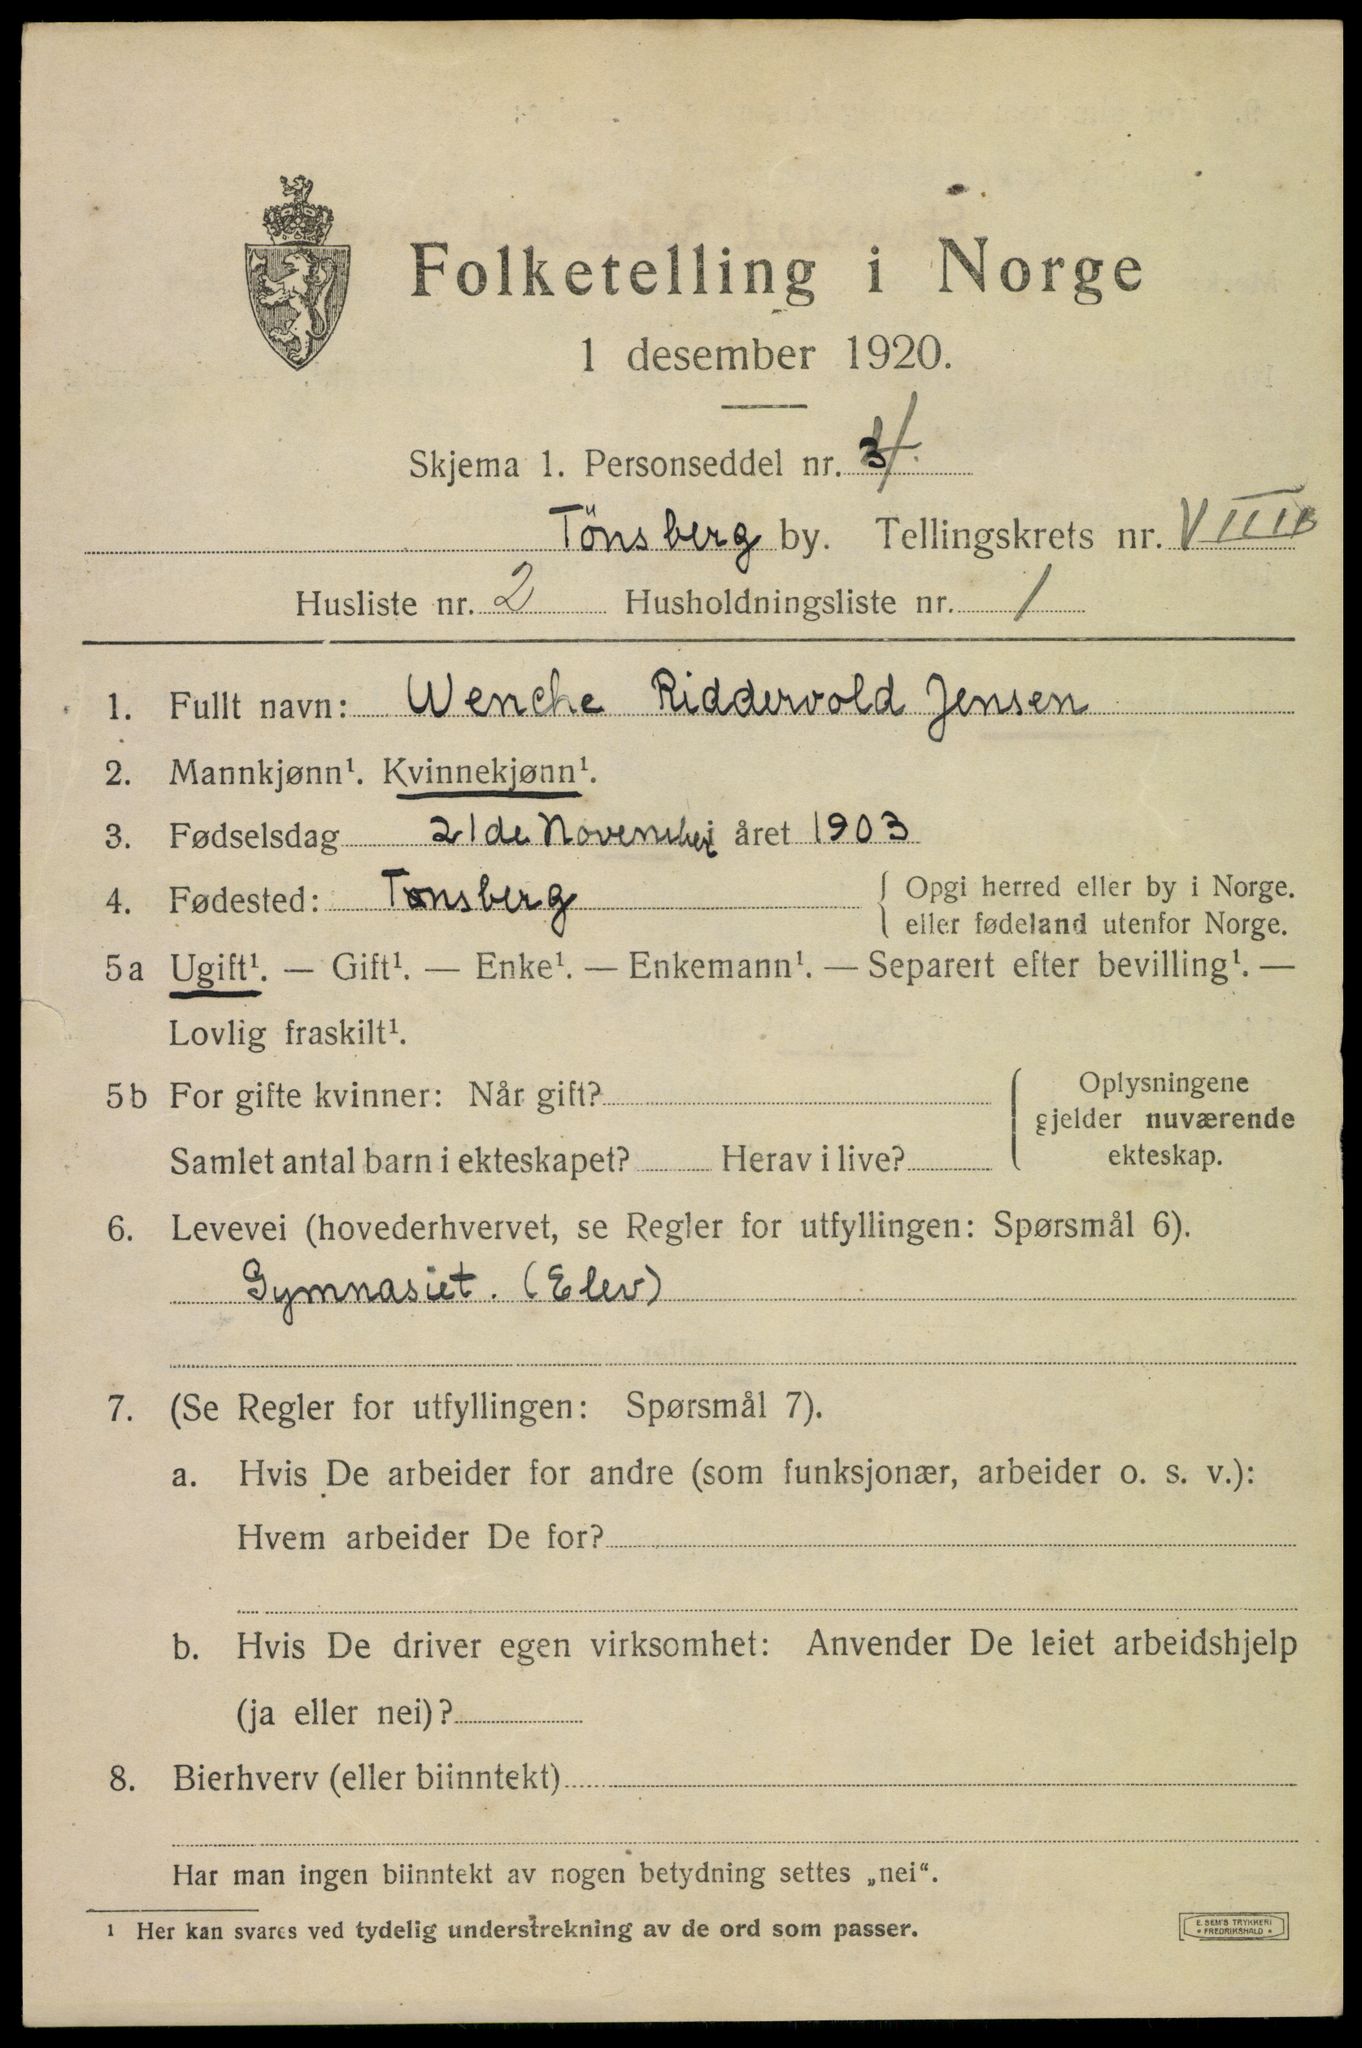 Folketelling i Norge
1 desember 1920.
Skjema 1. Personseddel nr. 4.
Tönsberg by. Tellingskrets nr. VIIIB
Husliste nr. 2 Husholdningsliste nr. 1
1. Fullt navn: Wenche Riddervold Jensen
2. Mannkjønn¹. Kvinnekjønn¹.
3. Fødselsdag 21de November året 1903
4. Fødested: Tønsberg { Opgi herred eller by i Norge.
eller fødeland utenfor Norge.
5a Ugift¹. — Gift¹. — Enke¹. — Enkemann¹. — Separert efter bevilling¹. —
Lovlig fraskilt¹.
5b For gifte kvinner: Når gift?
Samlet antal barn i ekteskapet? Herav i live?
Oplysningene
gjelder nuværende
ekteskap.
6. Levevei (hovederhvervet, se Regler for utfyllingen: Spørsmål 6).
Gymnasiet. (Elev)
7. (Se Regler for utfyllingen: Spørsmål 7).
a. Hvis De arbeider for andre (som funksjonær, arbeider o. s. v.):
Hvem arbeider De for?
b. Hvis De driver egen virksomhet: Anvender De leiet arbeidshjelp
(ja eller nei)?
8. Bierhverv (eller biinntekt)
Har man ingen biinntekt av nogen betydning settes „nei“.
1 Her kan svares ved tydelig understrekning av de ord som passer.
E. SEM'S TRYKKERI
* FREDRIKSHALD *